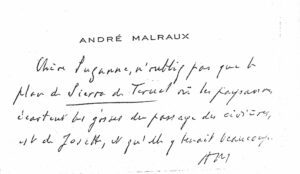 ANDRÉ MALRAUX
Chère Suzanne, n'oubliez pas que le
plan de Sierra de Teruel où les paysannes
écartent les gosses du passage des civières,
est de Josette, et qu'elle y tenait beaucoup.
AM